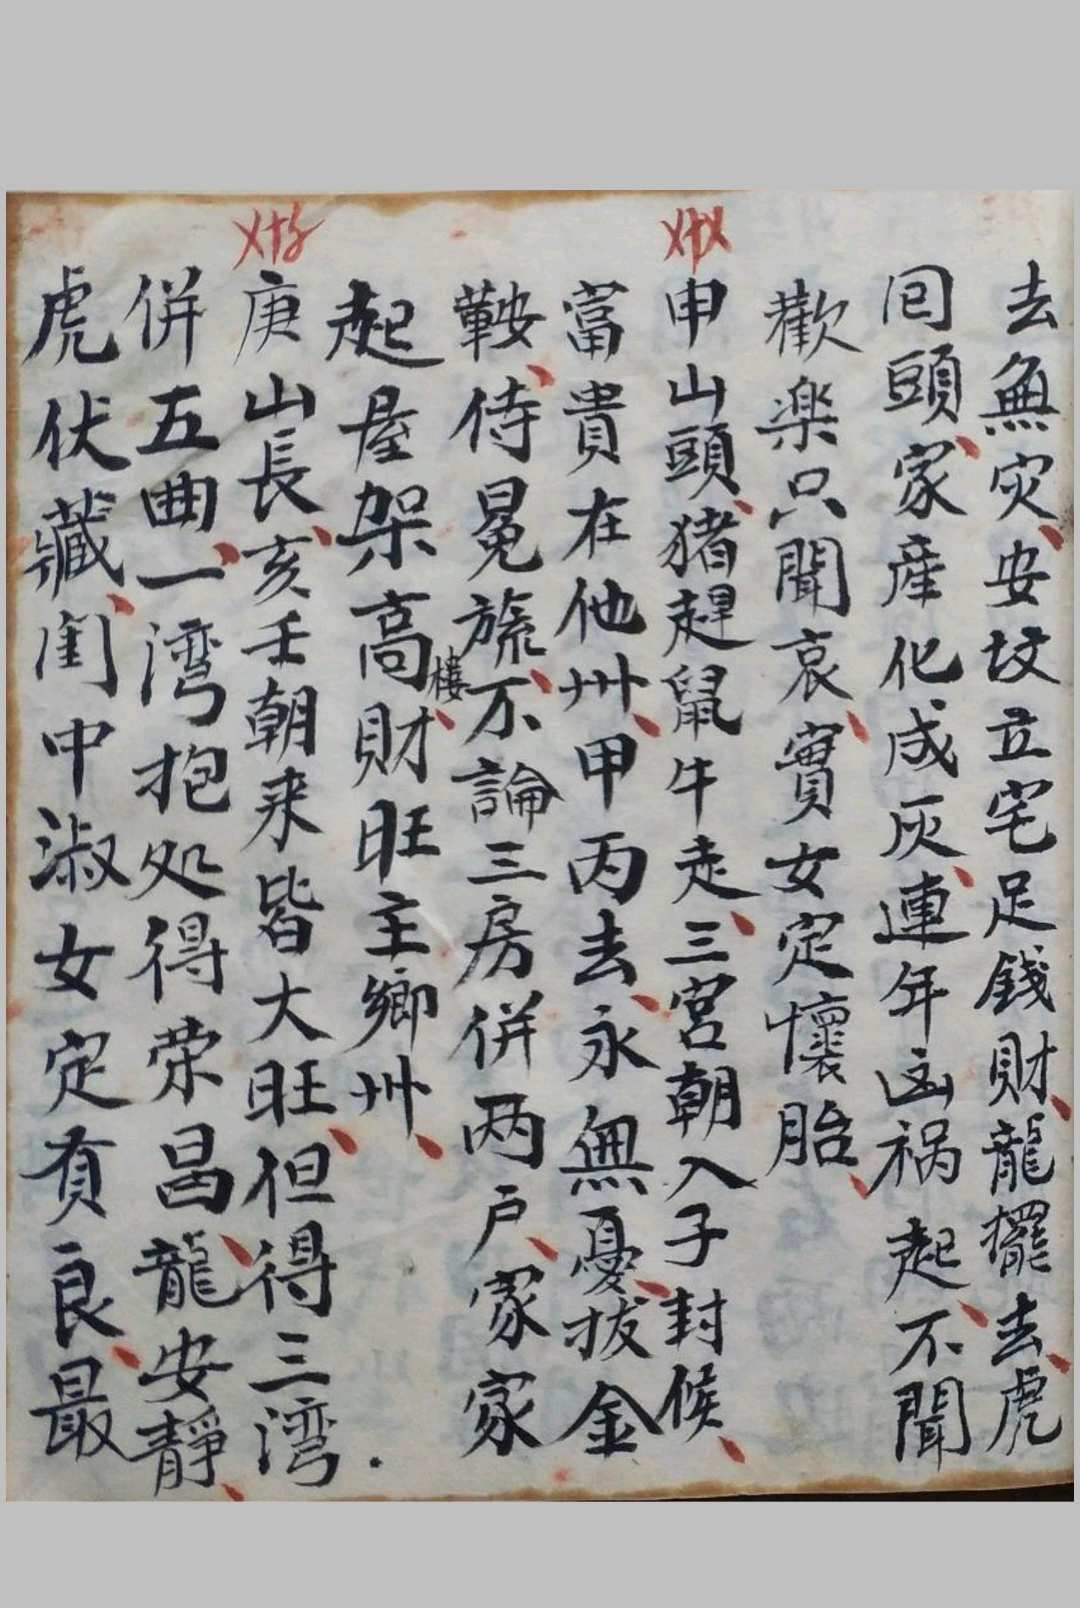 去無灾安坟立宅足錢財龍擺去虎
回頭家產化成灰連年凶祸起不聞
歡楽只聞哀實女定懷胎
申山頭猪趕鼠牛走三宮朝入子封候
富貴在他州甲丙去永無憂拔金
鞍侍冕旒不論三房併两户家家
起屋架高楼財旺主鄉州
庚山長亥壬朝来皆大旺但得三湾
併五曲一湾抱処得荣昌龍安靜
虎伏藏閨中淑女定有良最